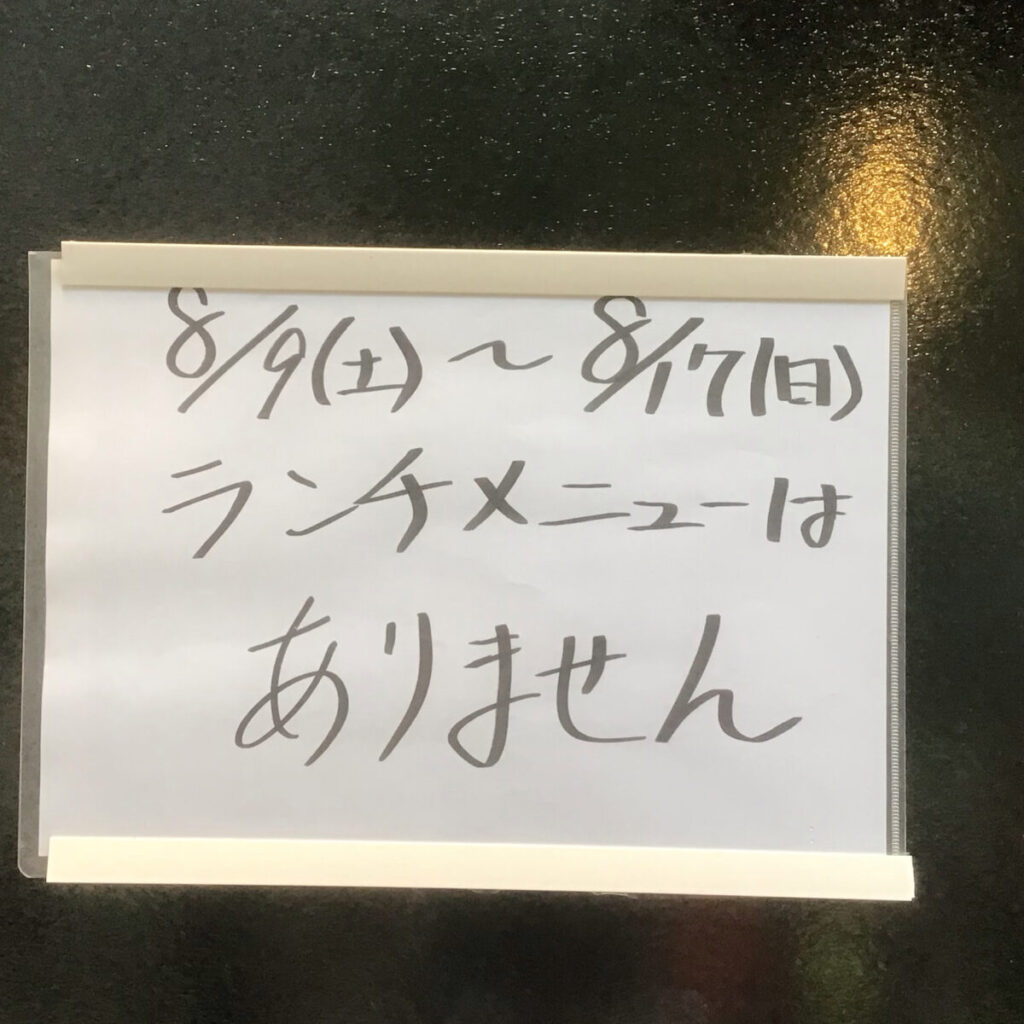 8/9(土)～8/17(日)
ランチメニューは
ありません